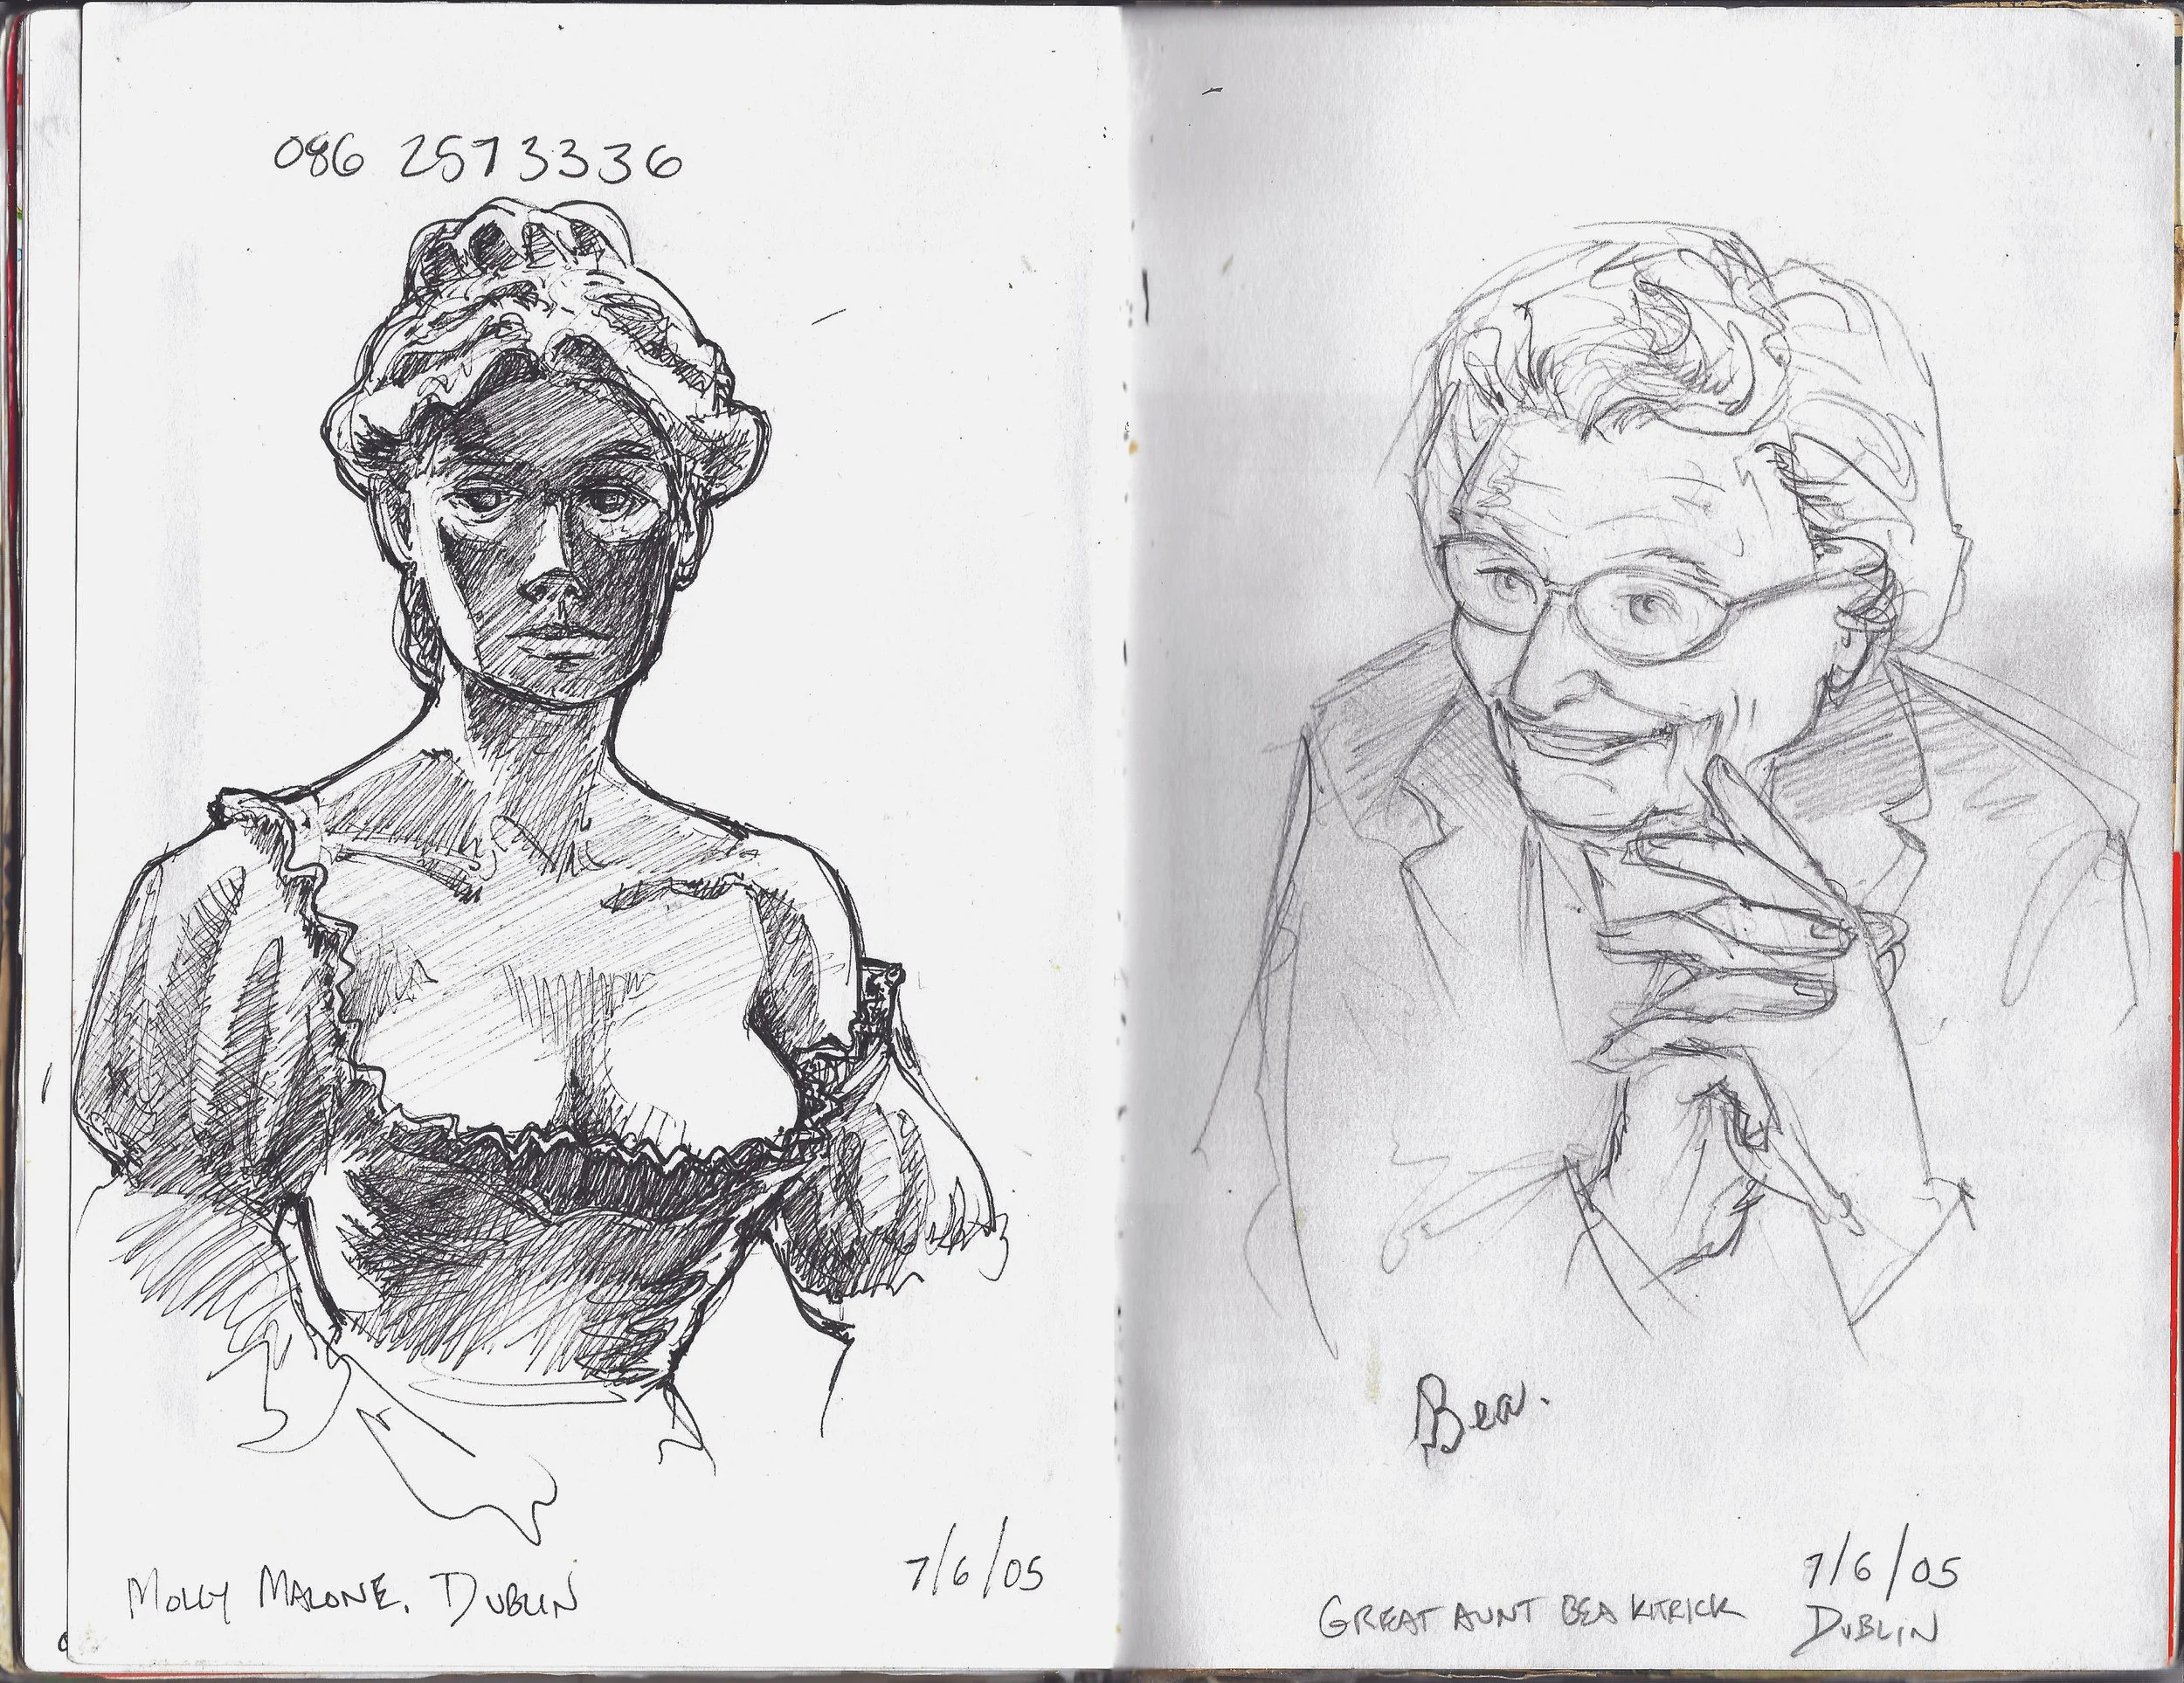 086 2573336
MOLLY MALONE, DUBLIN
7/6/05
Bea.
7/6/05
GREAT AUNT BEA KITRICK
DUBLIN